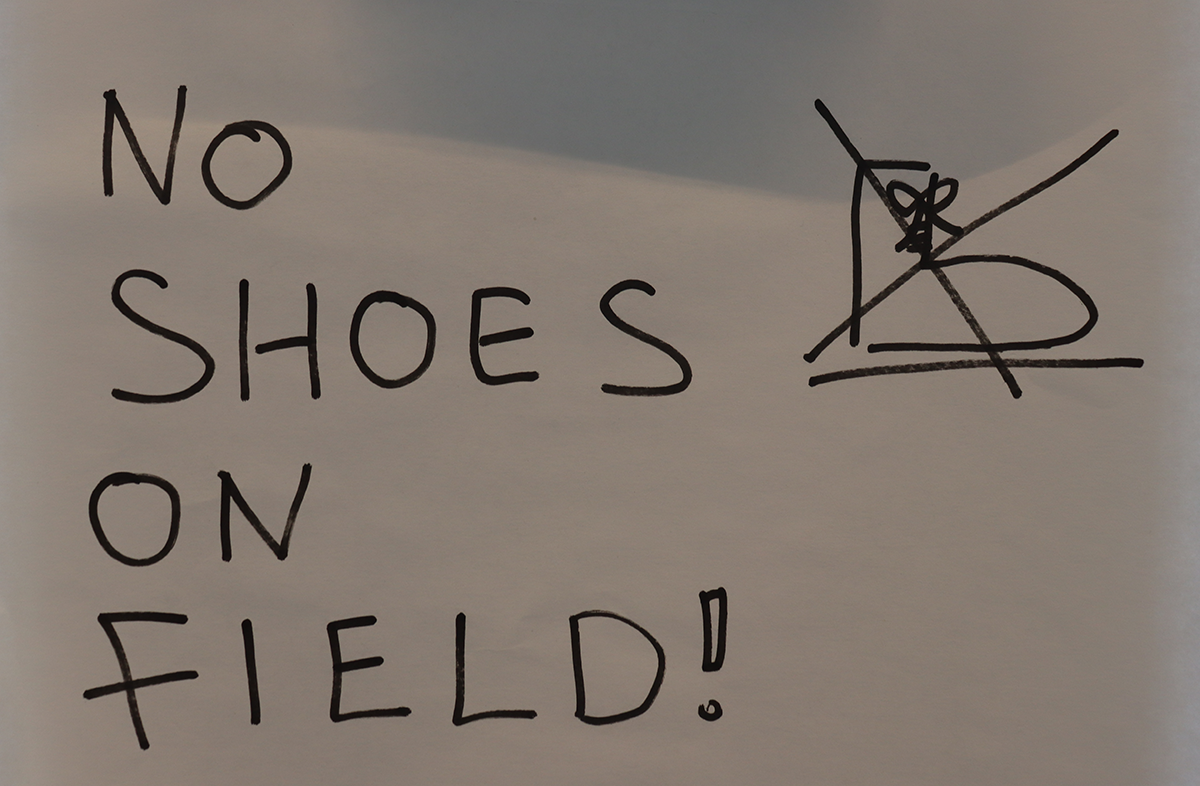 NO
SHOES
ON
FIELD!